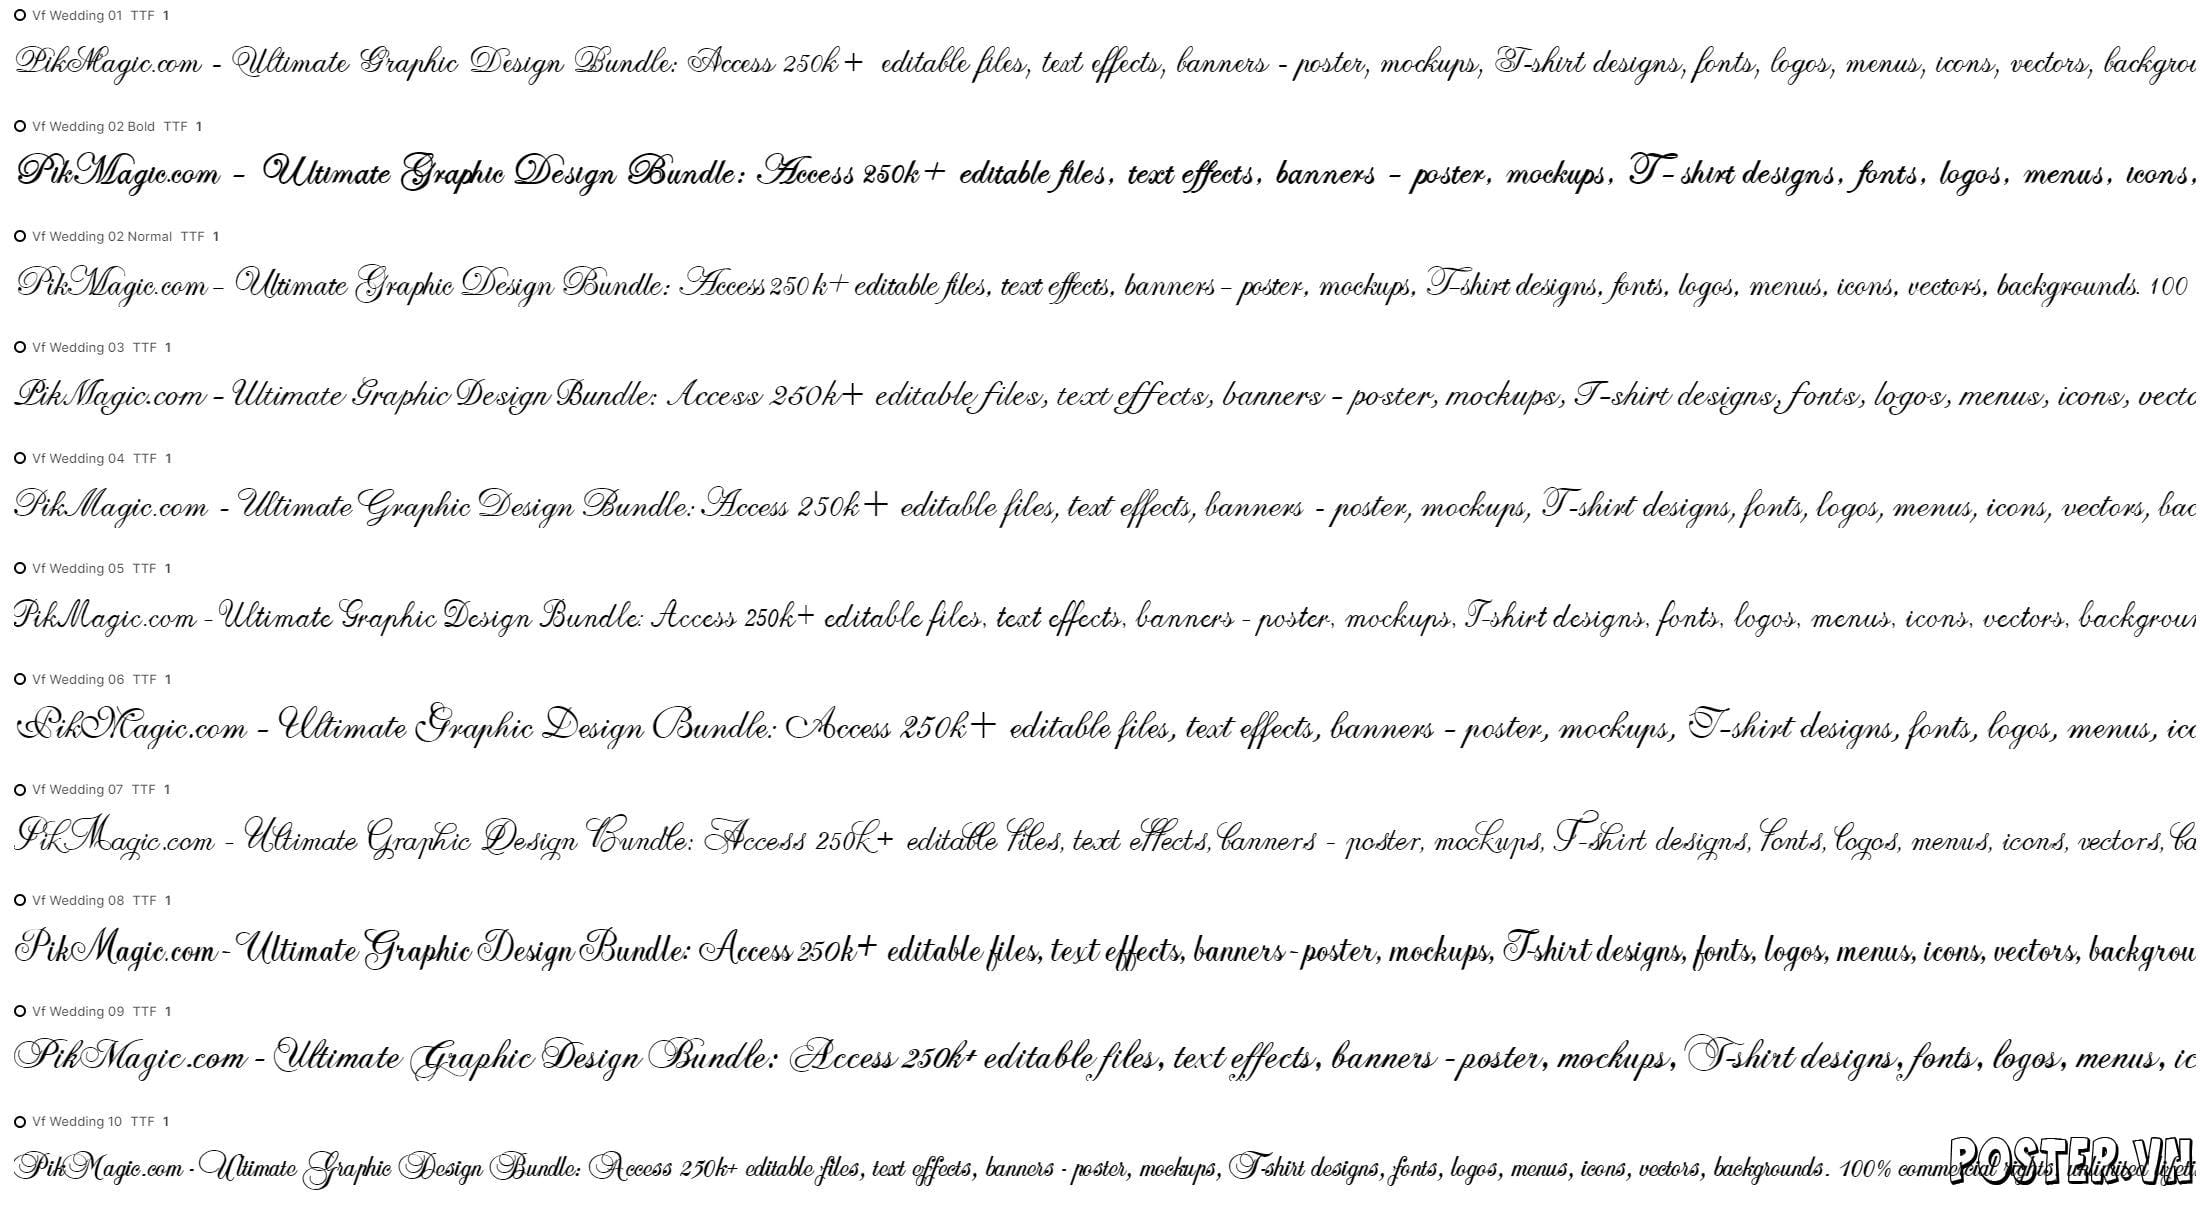 Vf Wedding 01 TTF 1
PikMagic.com - Ultimate Graphic Design Bundle: Access 250k+ editable files, text effects, banners - poster, mockups, T-shirt designs, fonts, logos, menus, icons, vectors, backgrou
Vf Wedding 02 Bold TTF 1
PikMagic.com - Ultimate Graphic Design Bundle: Access 250k+ editable files, text effects, banners - poster, mockups, T-shirt designs, fonts, logos, menus, icons,
Vf Wedding 02 Normal TTF 1
PikMagic.com - Ultimate Graphic Design Bundle: Access 250k+ editable files, text effects, banners - poster, mockups, T-shirt designs, fonts, logos, menus, icons, vectors, backgrounds. 100
Vf Wedding 03 TTF 1
PikMagic.com - Ultimate Graphic Design Bundle: Access 250k+ editable files, text effects, banners - poster, mockups, T-shirt designs, fonts, logos, menus, icons, vecto
Vf Wedding 04 TTF 1
PikMagic.com - Ultimate Graphic Design Bundle: Access 250k+ editable files, text effects, banners - poster, mockups, T-shirt designs, fonts, logos, menus, icons, vectors, bac
Vf Wedding 05 TTF 1
PikMagic.com - Ultimate Graphic Design Bundle: Access 250k+ editable files, text effects, banners - poster, mockups, T-shirt designs, fonts, logos, menus, icons, vectors, backgroun
Vf Wedding 06 TTF 1
PikMagic.com - Ultimate Graphic Design Bundle: Access 250k+ editable files, text effects, banners - poster, mockups, T-shirt designs, fonts, logos, menus, ico
Vf Wedding 07 TTF 1
PikMagic.com - Ultimate Graphic Design Bundle: Access 250k+ editable files, text effects, banners - poster, mockups, T-shirt designs, fonts, logos, menus, icons, vectors, ba
Vf Wedding 08 TTF 1
PikMagic.com - Ultimate Graphic Design Bundle: Access 250k+ editable files, text effects, banners - poster, mockups, T-shirt designs, fonts, logos, menus, icons, vectors, backgrou
Vf Wedding 09 TTF 1
PikMagic.com - Ultimate Graphic Design Bundle: Access 250k+ editable files, text effects, banners - poster, mockups, T-shirt designs, fonts, logos, menus, ic
Vf Wedding 10 TTF 1
PikMagic.com - Ultimate Graphic Design Bundle: Access 250k+ editable files, text effects, banners - poster, mockups, T-shirt designs, fonts, logos, menus, icons, vectors, backgrounds. 100% commercial rights
POSTER.VN